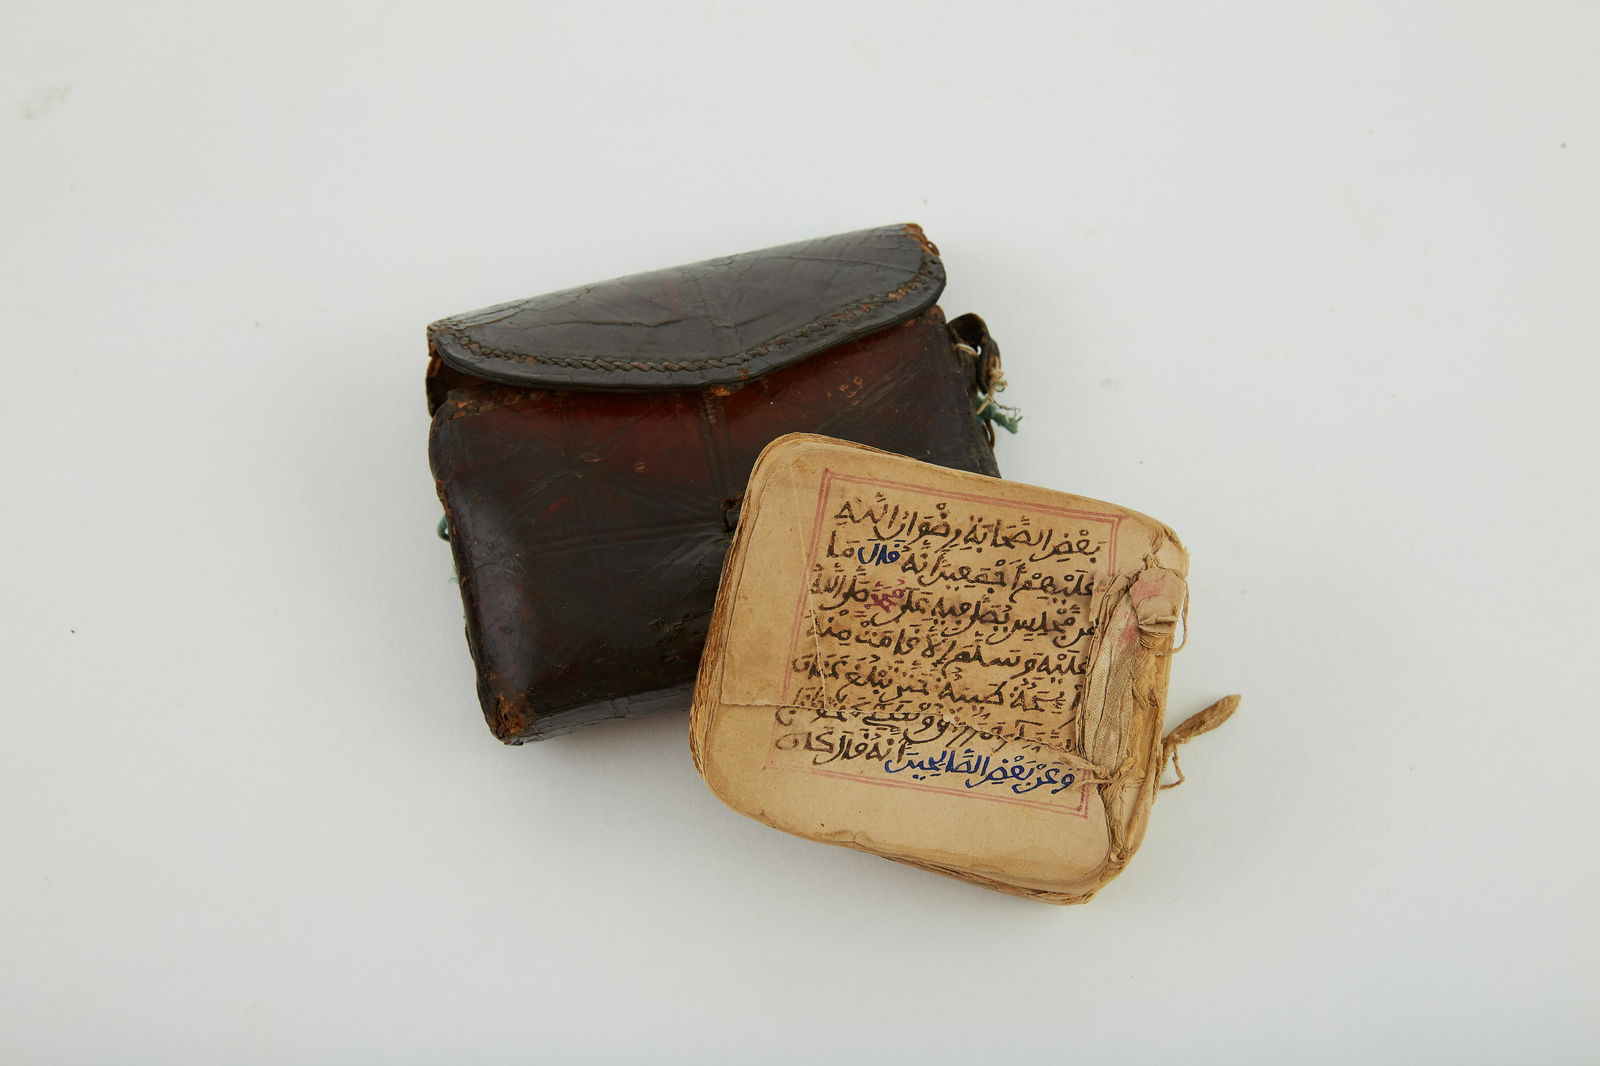 بَعْضِ الصَّحَابَةِ رِضْوَانُ اللَّهِ
عَلَيْهِمْ أَجْمَعِينَ أَنَّهُ قَالَ مَا
مِنْ مَّجْلِسٍ يُصَلَّى فِيهِ عَلَى مُحَمَّدٍ صَلَّى اللَّهُ
عَلَيْهِ وَسَلَّمَ إِلَّا قَامَتْ مِنْهُ
رَائِحَةٌ طَيِّبَةٌ حَتَّى تَبْلُغَ عَنَانَ
وَعَنْ بَعْضِ الصَّالِحِينَ أَنَّهُ قَالَ كَانَ